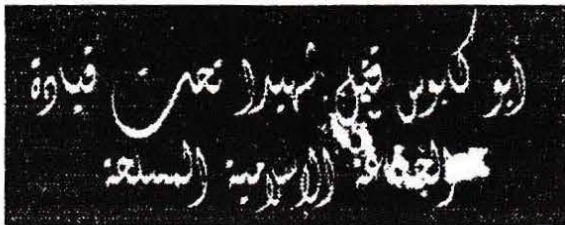 أبو كابوس قتيل شهيدا تحت قيادة
الاسلامية المسلحة